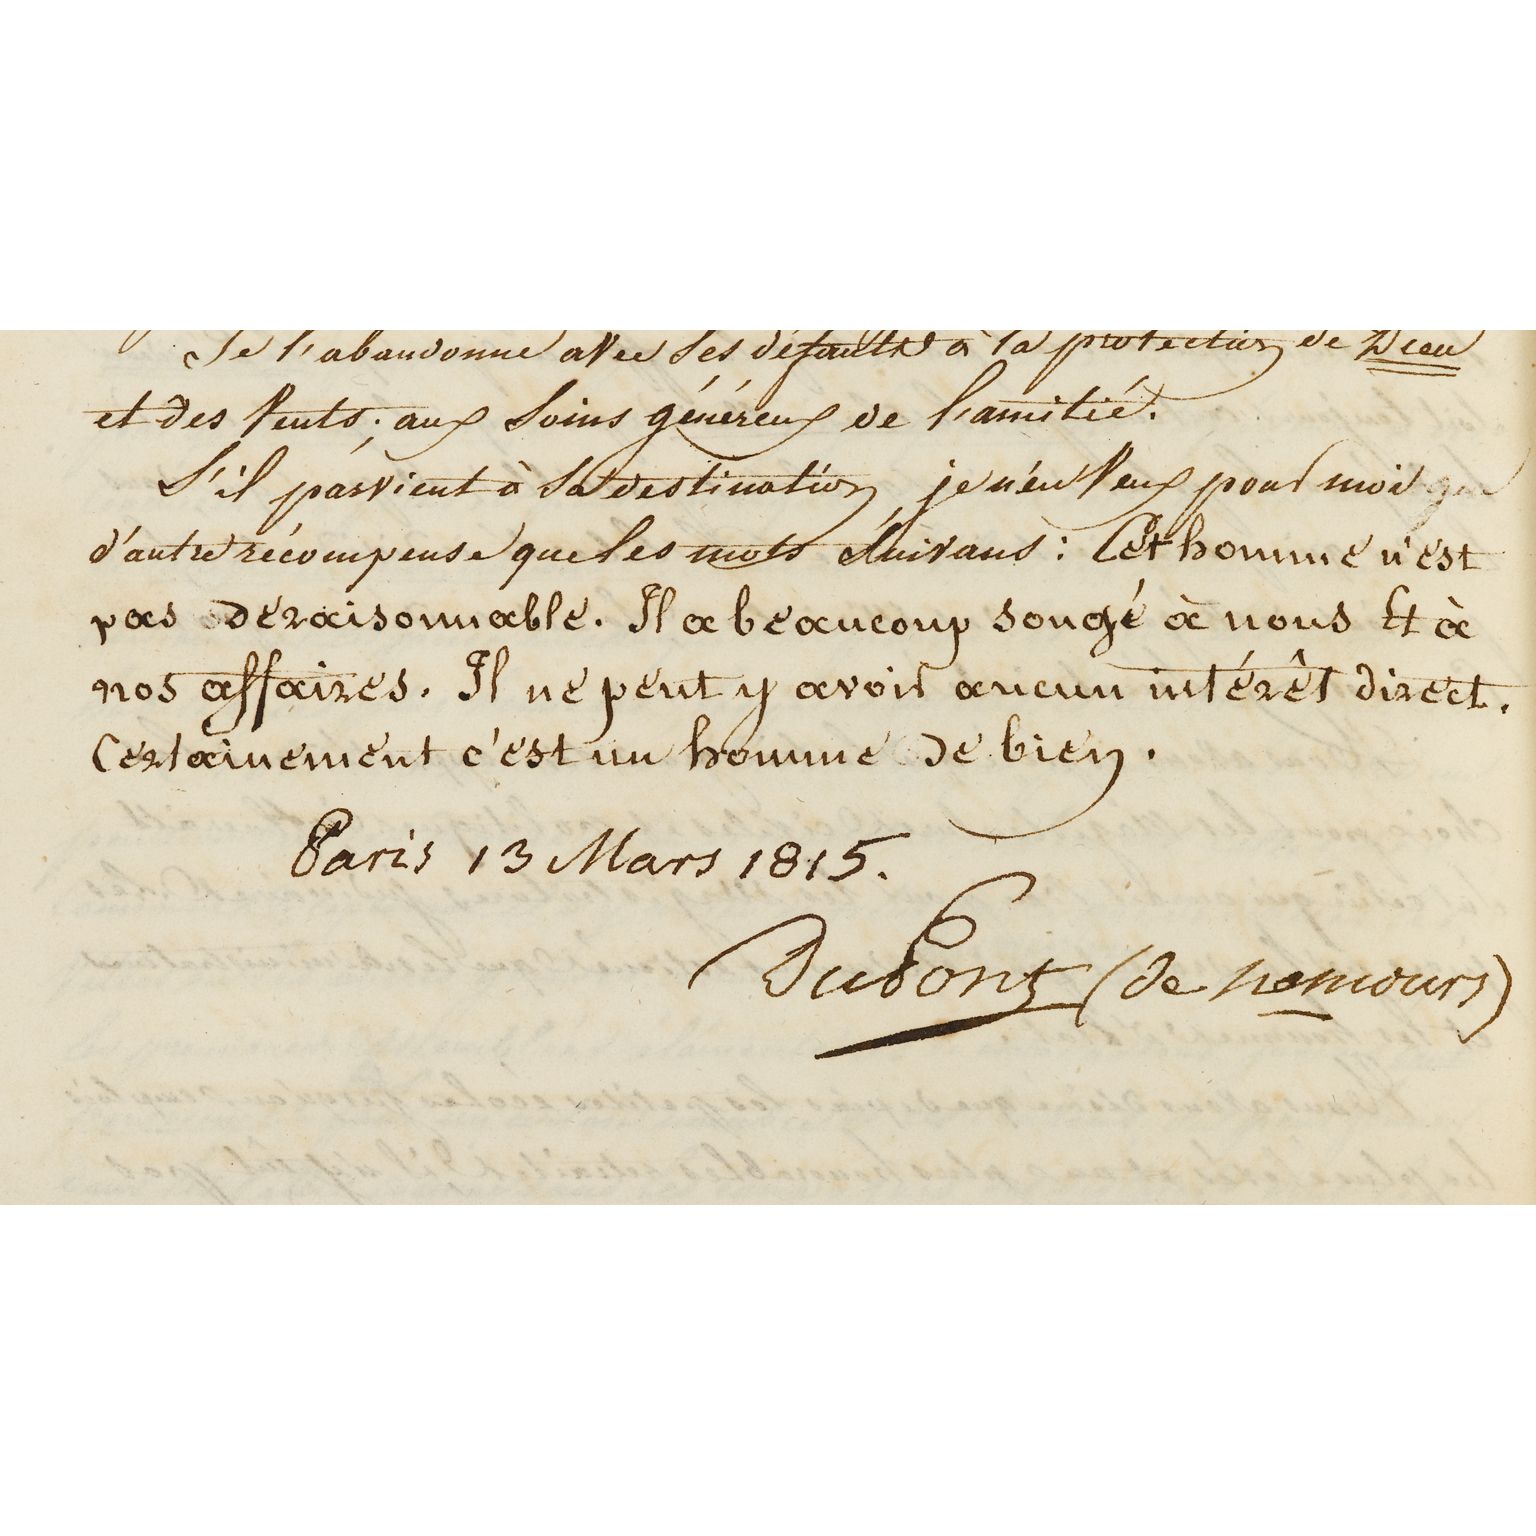 Je l'abandonne avec ses défauts à la protection de Dieu
et des Vents; aux Soins généreux de l'amitié.
S'il parvient à sa destination je n'en veux pour moi
d'autre récompense que les mots suivans: Cet homme n'est
pas deraisonnable. Il a beaucoup songé à nous Et à
nos affaires. Il ne peut y avoir aucun intérêt direct.
Certainement c'est un homme de bien.
Paris 13 Mars 1815.
DuPont (de nemours)